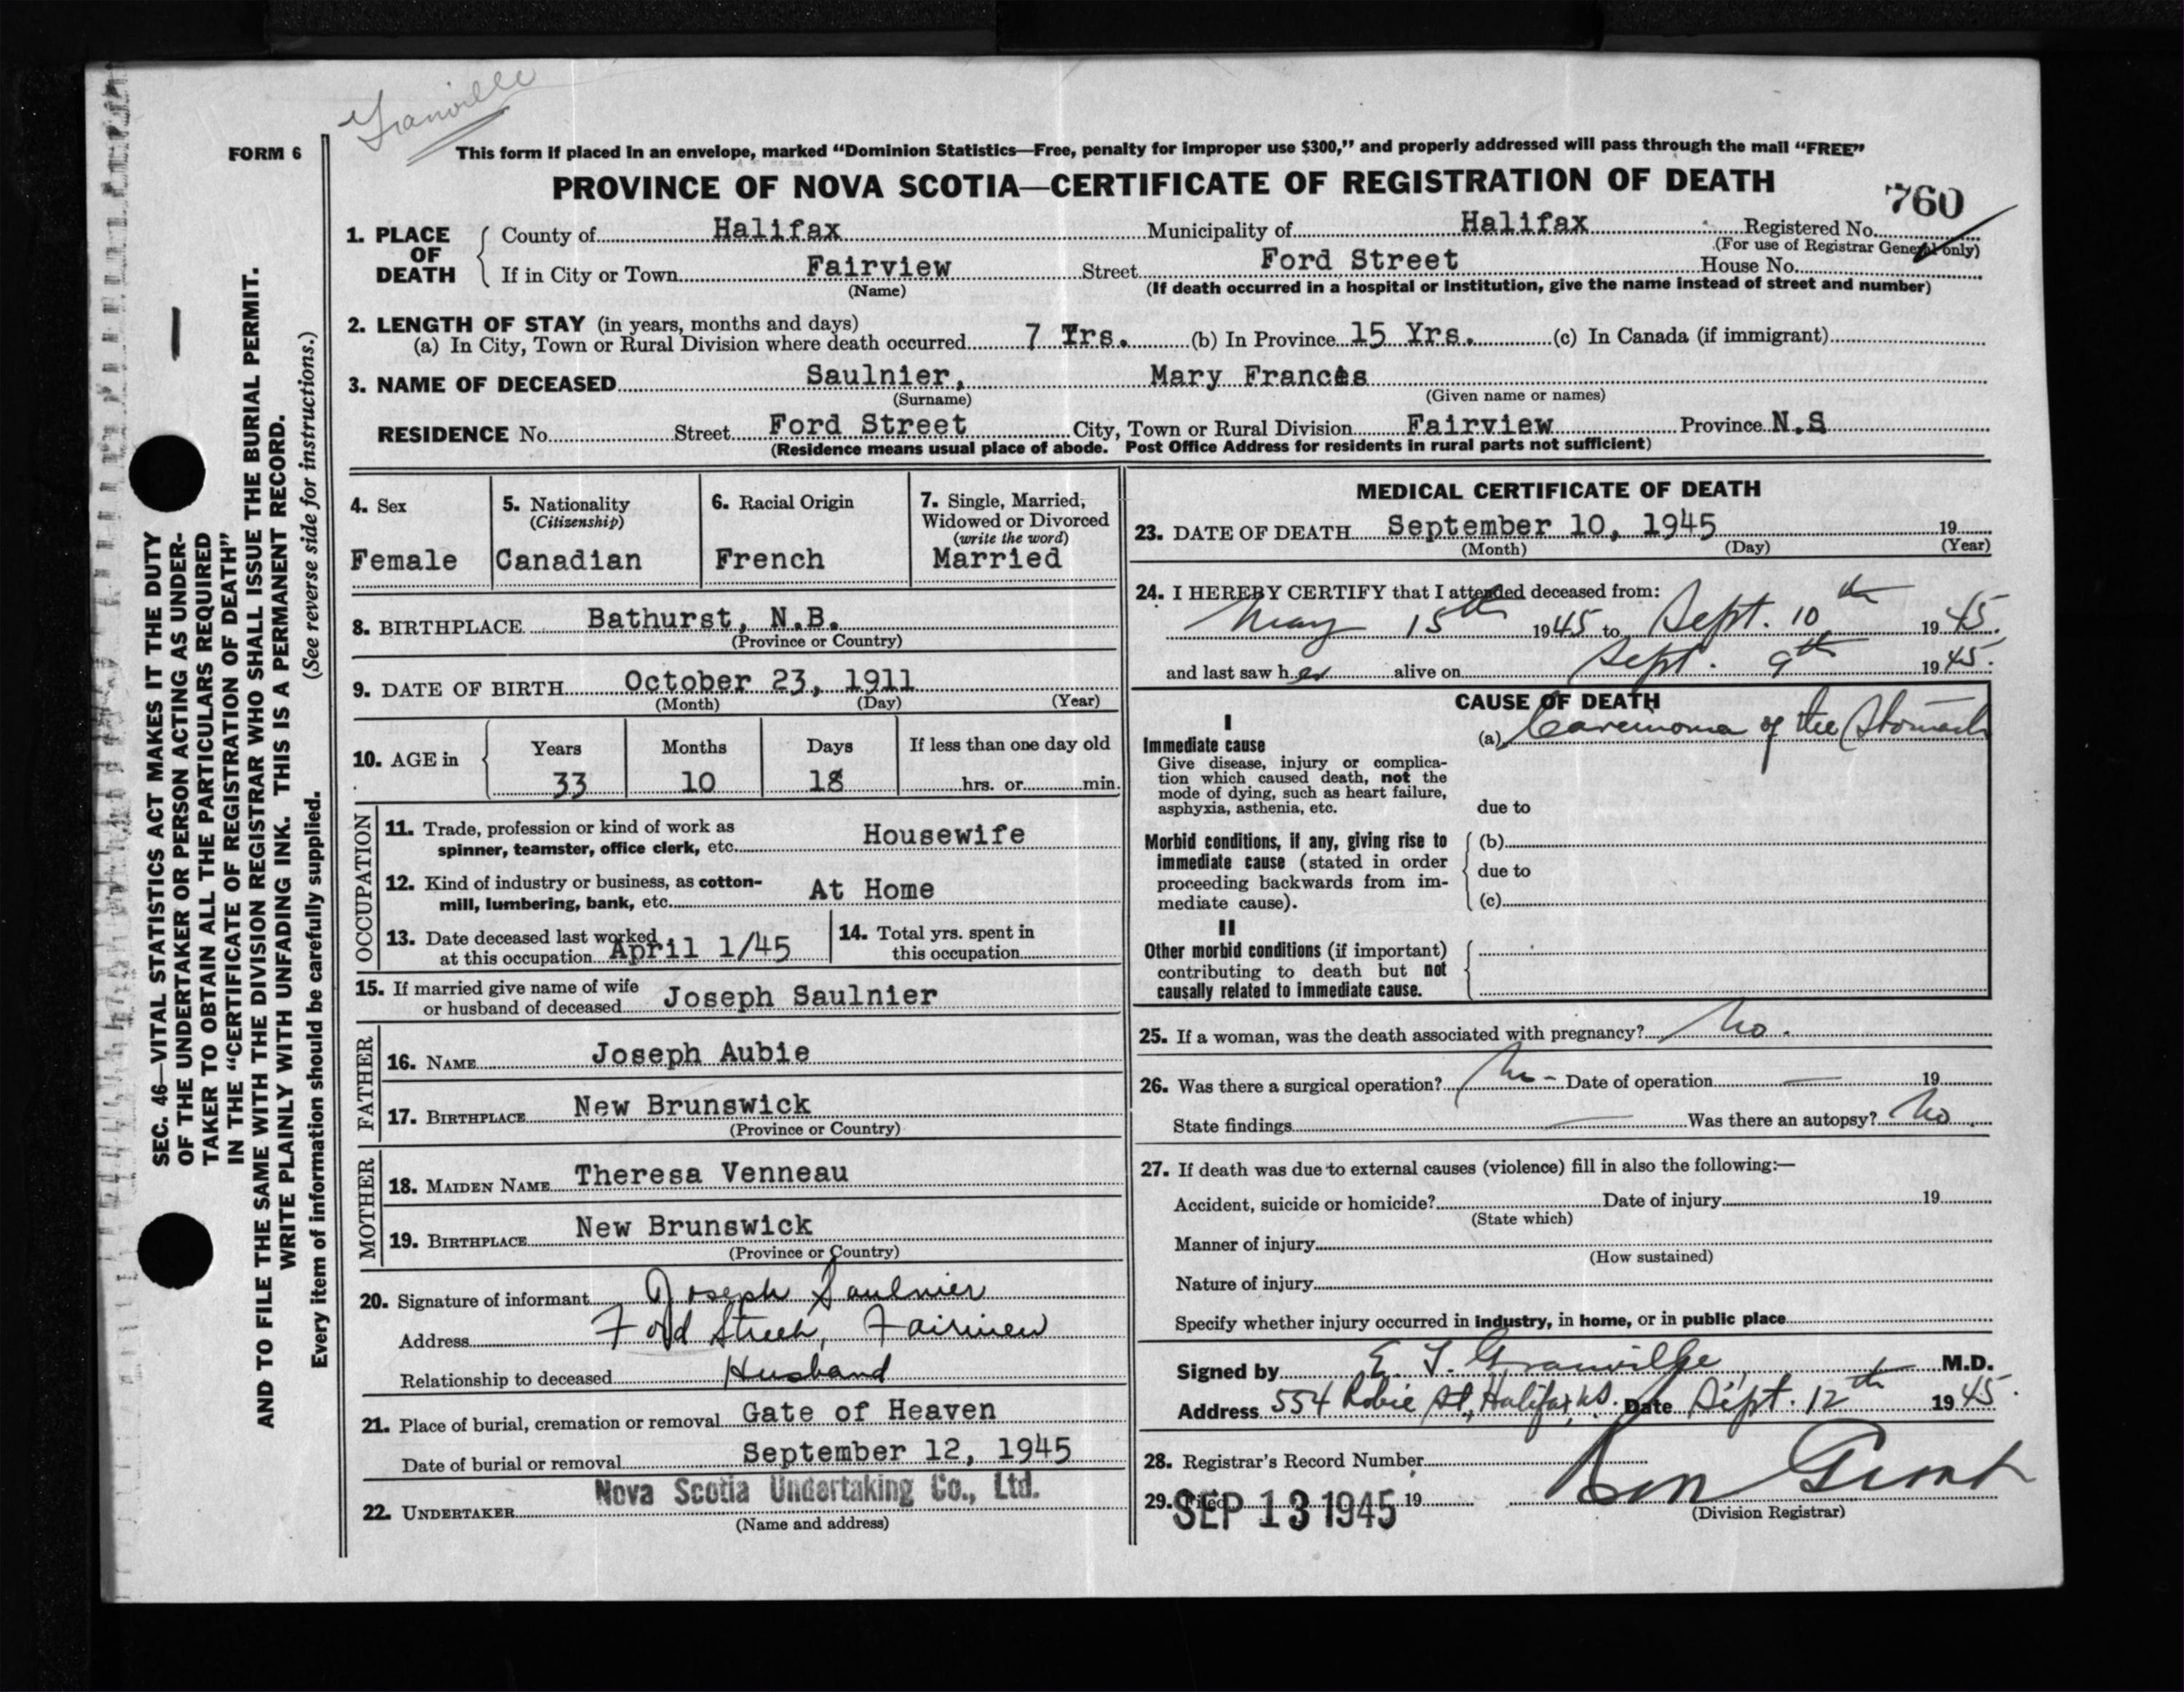 Granville
FORM 6
This form if placed in an envelope, marked "Dominion Statistics—Free, penalty for improper use $300," and properly addressed will pass through the mail "FREE"
PROVINCE OF NOVA SCOTIA—CERTIFICATE OF REGISTRATION OF DEATH
760
1. PLACE OF DEATH County of Halifax Municipality of Halifax Registered No.
(For use of Registrar General only)
If in City or Town Fairview Street Ford Street House No.
(Name) (If death occurred in a hospital or institution, give the name instead of street and number)
2. LENGTH OF STAY (in years, months and days)
(a) In City, Town or Rural Division where death occurred 7 Yrs. (b) In Province 15 Yrs. (c) In Canada (if immigrant)
3. NAME OF DECEASED Saulnier, Mary Frances
(Surname) (Given name or names)
RESIDENCE No. Street Ford Street City, Town or Rural Division Fairview Province N.S
(Residence means usual place of abode. Post Office Address for residents in rural parts not sufficient)
4. Sex
Female
5. Nationality
(Citizenship)
Canadian
6. Racial Origin
French
7. Single, Married,
Widowed or Divorced
(write the word)
Married
8. BIRTHPLACE Bathurst, N.B.
(Province or Country)
9. DATE OF BIRTH October 23, 1911
(Month) (Day) (Year)
10. AGE in Years Months Days If less than one day old
33 10 18 hrs. or min.
OCCUPATION
11. Trade, profession or kind of work as
spinner, teamster, office clerk, etc. Housewife
12. Kind of industry or business, as cotton-
mill, lumbering, bank, etc. At Home
13. Date deceased last worked
at this occupation April 1/45
14. Total yrs. spent in
this occupation
15. If married give name of wife
or husband of deceased Joseph Saulnier
FATHER
16. NAME Joseph Aubie
17. BIRTHPLACE New Brunswick
(Province or Country)
MOTHER
18. MAIDEN NAME Theresa Venneau
19. BIRTHPLACE New Brunswick
(Province or Country)
20. Signature of informant Joseph Saulnier
Address Ford Street, Fairview
Relationship to deceased Husband
21. Place of burial, cremation or removal Gate of Heaven
Date of burial or removal September 12, 1945
22. UNDERTAKER Nova Scotia Undertaking Co., Ltd.
(Name and address)
MEDICAL CERTIFICATE OF DEATH
23. DATE OF DEATH September 10, 1945 19
(Month) (Day) (Year)
24. I HEREBY CERTIFY that I attended deceased from:
May 15th 1945 to Sept. 10th 1945.
and last saw her alive on Sept. 9th 1945.
CAUSE OF DEATH
I
Immediate cause (a) Carcinoma of the Stomach
Give disease, injury or complica-
tion which caused death, not the
mode of dying, such as heart failure,
asphyxia, asthenia, etc. due to
Morbid conditions, if any, giving rise to (b)
immediate cause (stated in order due to
proceeding backwards from im-
mediate cause). (c)
II
Other morbid conditions (if important)
contributing to death but not
causally related to immediate cause.
25. If a woman, was the death associated with pregnancy? No.
26. Was there a surgical operation? No - Date of operation — 19
State findings — Was there an autopsy? No.
27. If death was due to external causes (violence) fill in also the following:—
Accident, suicide or homicide? Date of injury 19
(State which)
Manner of injury
(How sustained)
Nature of injury
Specify whether injury occurred in industry, in home, or in public place
Signed by E. F. Granville M.D.
Address 554 Robie St., Halifax, N.S. Date Sept. 12th 1945.
28. Registrar's Record Number
29. Filed SEP 13 1945 19 Ron Grant
(Division Registrar)
SEC. 46—VITAL STATISTICS ACT MAKES IT THE DUTY
OF THE UNDERTAKER OR PERSON ACTING AS UNDER-
TAKER TO OBTAIN ALL THE PARTICULARS REQUIRED
IN THE "CERTIFICATE OF REGISTRATION OF DEATH"
AND TO FILE THE SAME WITH THE DIVISION REGISTRAR WHO SHALL ISSUE THE BURIAL PERMIT.
WRITE PLAINLY WITH UNFADING INK. THIS IS A PERMANENT RECORD.
Every item of information should be carefully supplied. (See reverse side for instructions.)